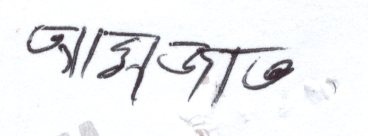 আম্মাজাত